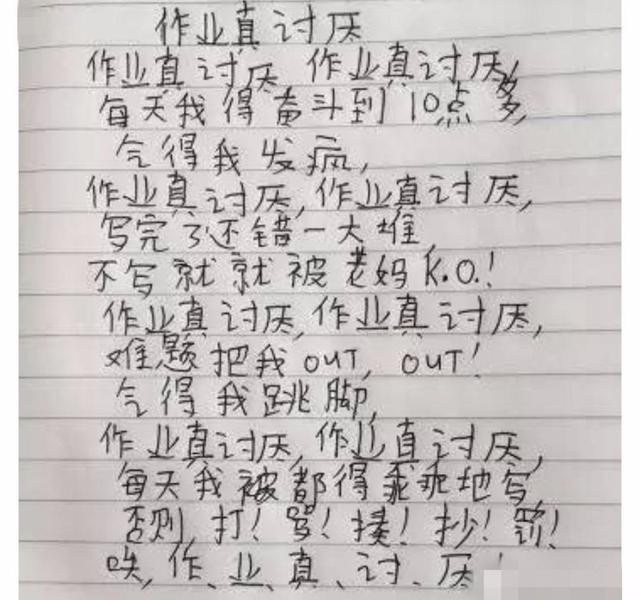 作业真讨厌
作业真讨厌,作业真讨厌,
每天我得奋斗到10点多,
气得我发疯,
作业真讨厌,作业真讨厌,
写完了还错一大堆,
不写就就被老妈K.O.!
作业真讨厌,作业真讨厌,
难题把我OUT,OUT!
气得我跳脚,
作业真讨厌,作业真讨厌,
每天我被都得乖乖地写,
否则,打!骂!揍!抄!罚!
唉,作、业、真、讨、厌!